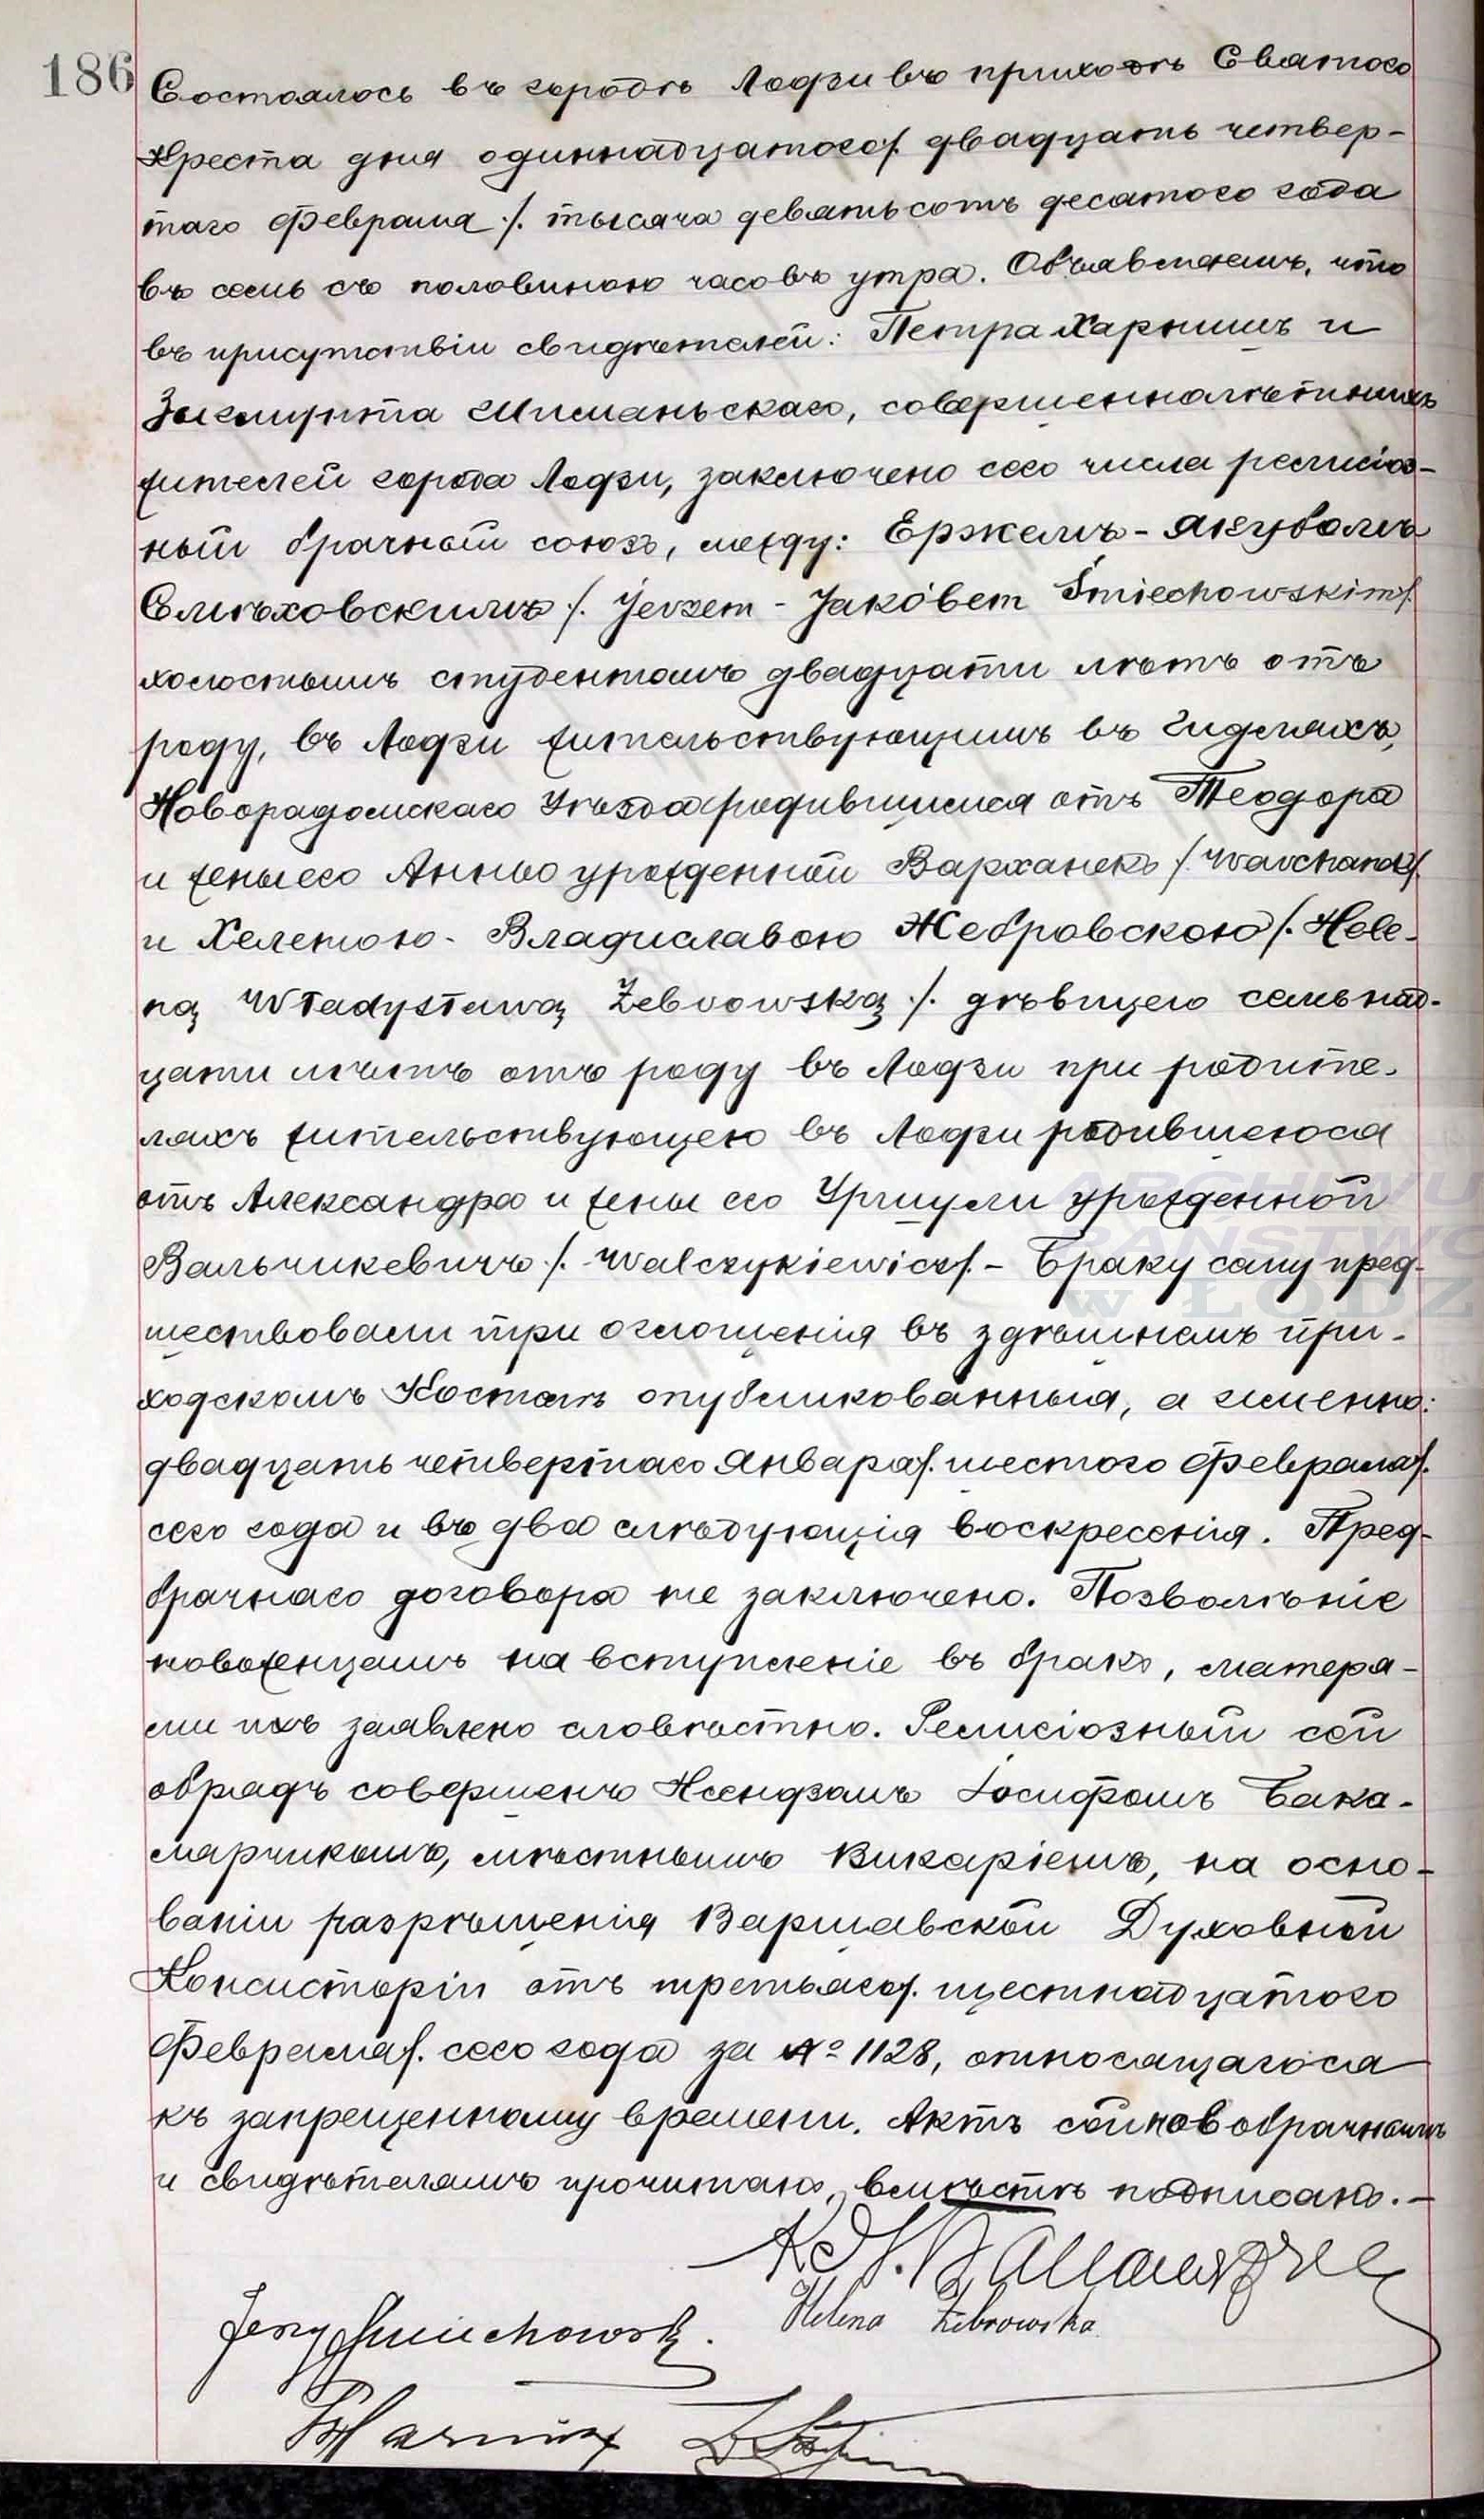 186
Состоялось въ городѣ Лодзи въ приходѣ Святого
Креста дня одиннадцатого/. двадцать четвер-
таго Февраля ./. тысяча девятьсотъ десятого года
въ семь съ половиною часовъ утра. Объявляемъ, что
въ присутствіи свидѣтелей: Петра Харнишъ и
Зыгмунта Шиманьскаго, совершеннолѣтнихъ
жителей города Лодзи, заключено сего числа религіоз-
ный брачный союзъ, между: Ержемъ-Якубомъ
Смѣховскимъ ./. Jerzem - Jakóbem Śmiechowskim/.
холостымъ студентомъ двадцати лѣтъ отъ
роду, въ Лодзи жительствующимъ въ Гидляхъ,
Новорадомскаго Уѣзда родившимся отъ Теодора
и жены его Анны урожденной Варханекъ /. Warchanek/.
и Хеленою - Владиславою Жебровскою /. Hele-
ną Władysławą Żebrowską ./. дѣвицею семьнад-
цати лѣтъ отъ роду въ Лодзи при родите-
ляхъ жительствующею въ Лодзи родившеюся
отъ Александра и жены его Уршули урожденной
Вальчикевичъ /. Walczykiewicz/. - Браку сему пред-
шествовали три оглошенія въ здѣшнемъ при-
ходскомъ Костелѣ опубликованныя, а именно:
двадцать четвертаго Января/. шестого Февраля/.
сего года и въ два слѣдующія воскресенія. Пред-
брачнаго договора не заключено. Позволѣніе
новоженцамъ на вступленіе въ бракъ, матеря-
ми ихъ заявлено словѣстно. Религіозный сей
обрядъ совершенъ Ксендзомъ Іосифомъ Бака-
лярчикомъ, мѣстнымъ Викаріемъ, на осно-
ваніи разрѣшенія Варшавской Духовной
Консисторіи отъ третьяго/. шестнадцатого
Февраля/. сего года за № 1128, относящагося
къ запрещенному времени. Актъ сей новобрачнымъ
и свидѣтелямъ прочитанъ, вмѣстѣ подписанъ. -
Helena Żebrowska
Jerzy Śmiechowski.
ARCHIWU
PAŃSTWO
w ŁODZ